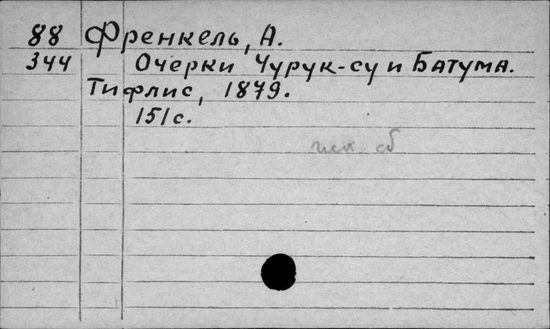 88 Френкель, А.
344 Очерки Чурук-су и Батума.
Тифлис, 1879.
151 с.